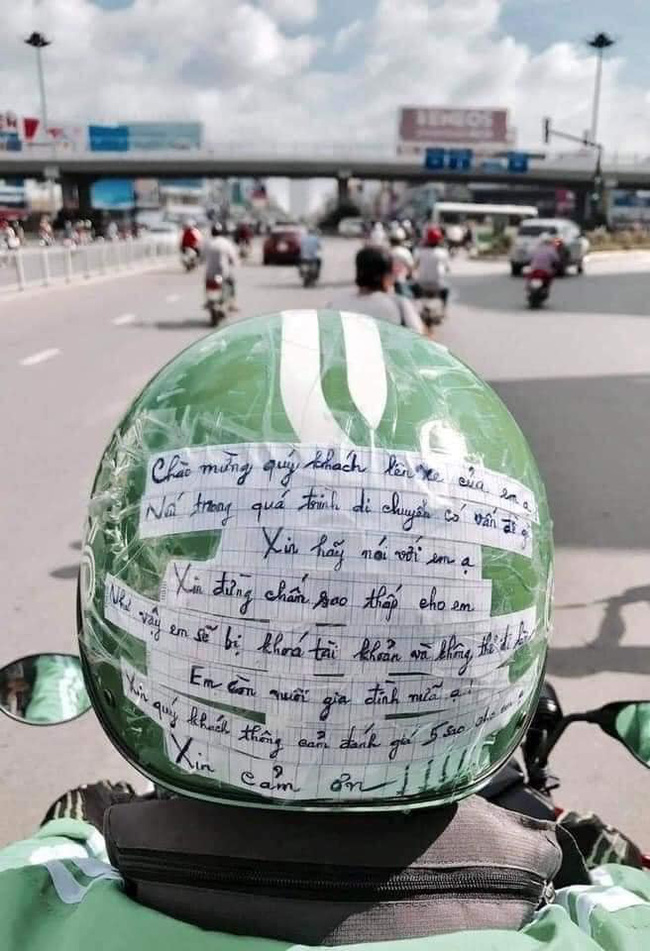 BENEOS
Chào mừng quý khách lên xe của em ạ
Nếu trong quá trình di chuyển có vấn đề gì
Xin hãy nói với em ạ
Xin đừng chấm sao thấp cho em
Như vậy em sẽ bị khoá tài khoản và không thể đi làm
Em còn nuôi gia đình nữa ạ!
Xin quý khách thông cảm đánh giá 5 sao cho em ạ
Xin cảm ơn !!!!